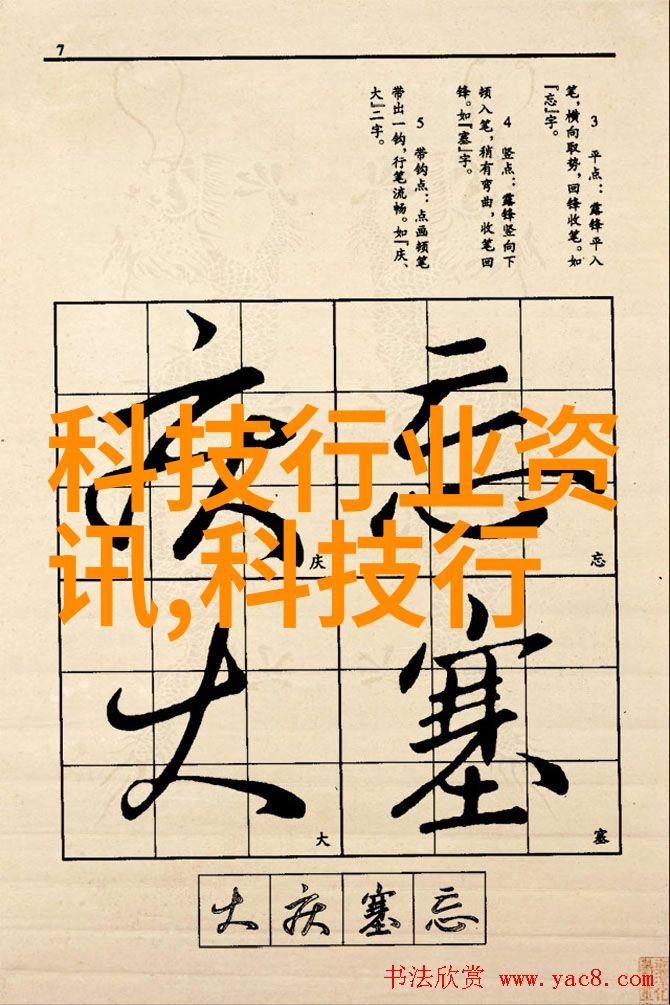 7
3 平点：露锋平入
笔，横向取势，回锋收笔。如
『忘』字。
4 竖点：露锋竖向下
顿入笔，稍有弯曲，收笔回
锋。如『塞』字。
5 带钩点：点画顿笔
带出一钩，行笔流畅。如『庆、
大』二字。
科技行业资
讯,科技行
庆
忘
大
塞
庆
忘
大
塞
大庆塞忘
书法欣赏 www.yac8.com